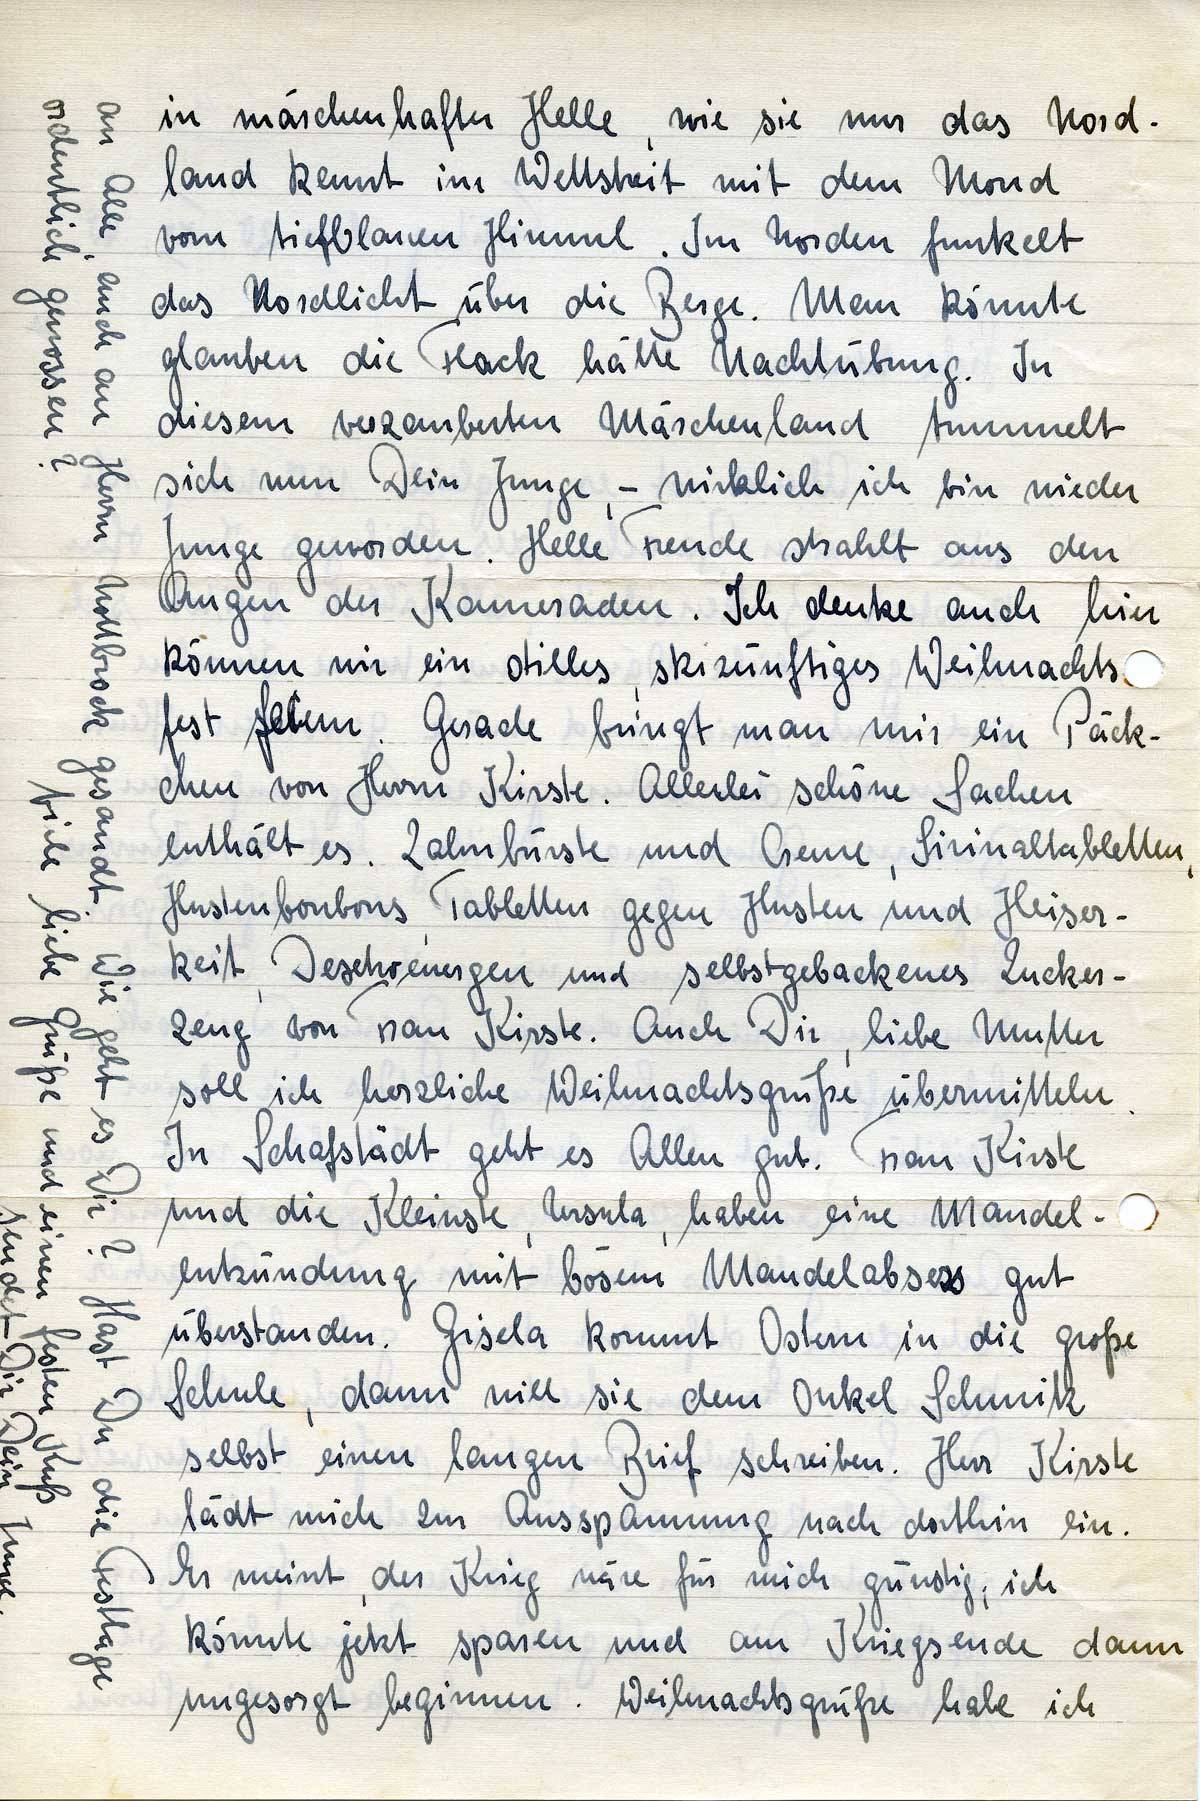 in märchenhafter Helle, wie sie nur das Nord-
land kennt im Wettstreit mit dem Mond
vom tiefblauen Himmel. Im Norden funkelt
das Nordlicht über die Berge. Man könnte
glauben die Flack hätte Nachtübung. In
diesem verzauberten Märchenland tummelt
sich nun Dein Junge, - wirklich ich bin wieder
Junge geworden. Helle Freude strahlt aus den
Augen der Kameraden. Ich denke auch hier
können wir ein stilles, skizünftiges Weihnachts
fest feiern. Gerade bringt man mir ein Päck-
chen von Herrn Kirste. Allerlei schöne Sachen
enthält es. Zahnbürste und Creme, Sirinaltabletten,
Hustenbonbons, Tabletten gegen Husten und Heiser-
keit, und selbstgebackenes Zucker-
zeug von Frau Kirste. Auch Dir, liebe Mutter
soll ich herzliche Weihnachtsgrüße übermitteln.
In Schafstädt geht es Allen gut. Frau Kirste
und die Kleinste, Ursula, haben eine Mandel-
entzündung mit bösem Mandelabsess gut
überstanden. Gisela kommt Ostern in die große
Schule, dann will sie dem Onkel Schmitz
selbst einen langen Brief schreiben. Herr Kirste
lädt mich zur Ausspannung nach dorthin ein.
Er meint, der Krieg wäre für mich günstig, ich
könnte jetzt sparen und am Kriegsende dann
ungesorgt beginnen. Weihnachtsgrüße habe ich
an Alle, auch an Herrn Nottbrock gesandt. Wie geht es Dir? Hast Du die Festtage
ordentlich genossen?
Viele liebe Grüße und einen festen Kuß
sendet Dir Dein Junge.